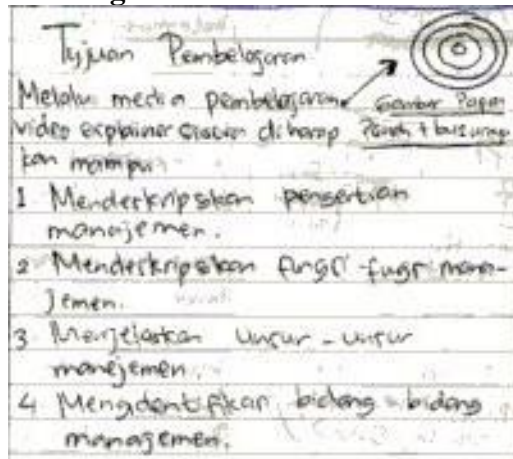 Tujuan Pembelajaran
Melalui media pembelajaran
video explainer siswa diharap
kan mampu
1 Menderkripsikan pengertian
manajemen.
2 Menderkripsikan fungsi-fugsi mana-
jemen.
3 Menjelaskan Unsur-unsur
manejemen.
4 Mengdentifikar bidang-bidang
managemen.
Gambar Papan
Panah +